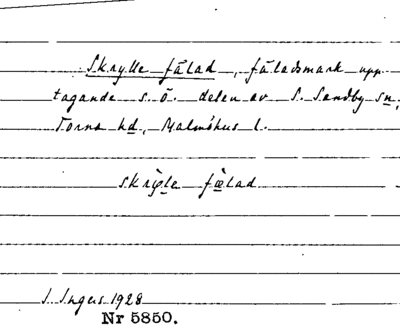 Skrylle fälad, fäladsmark upp-
tagande s. ö. delen av S. Sandby sn,
Torna hd, Malmöhus l.
skrỳle fælad
I. Ingers 1928
Nr 5850.